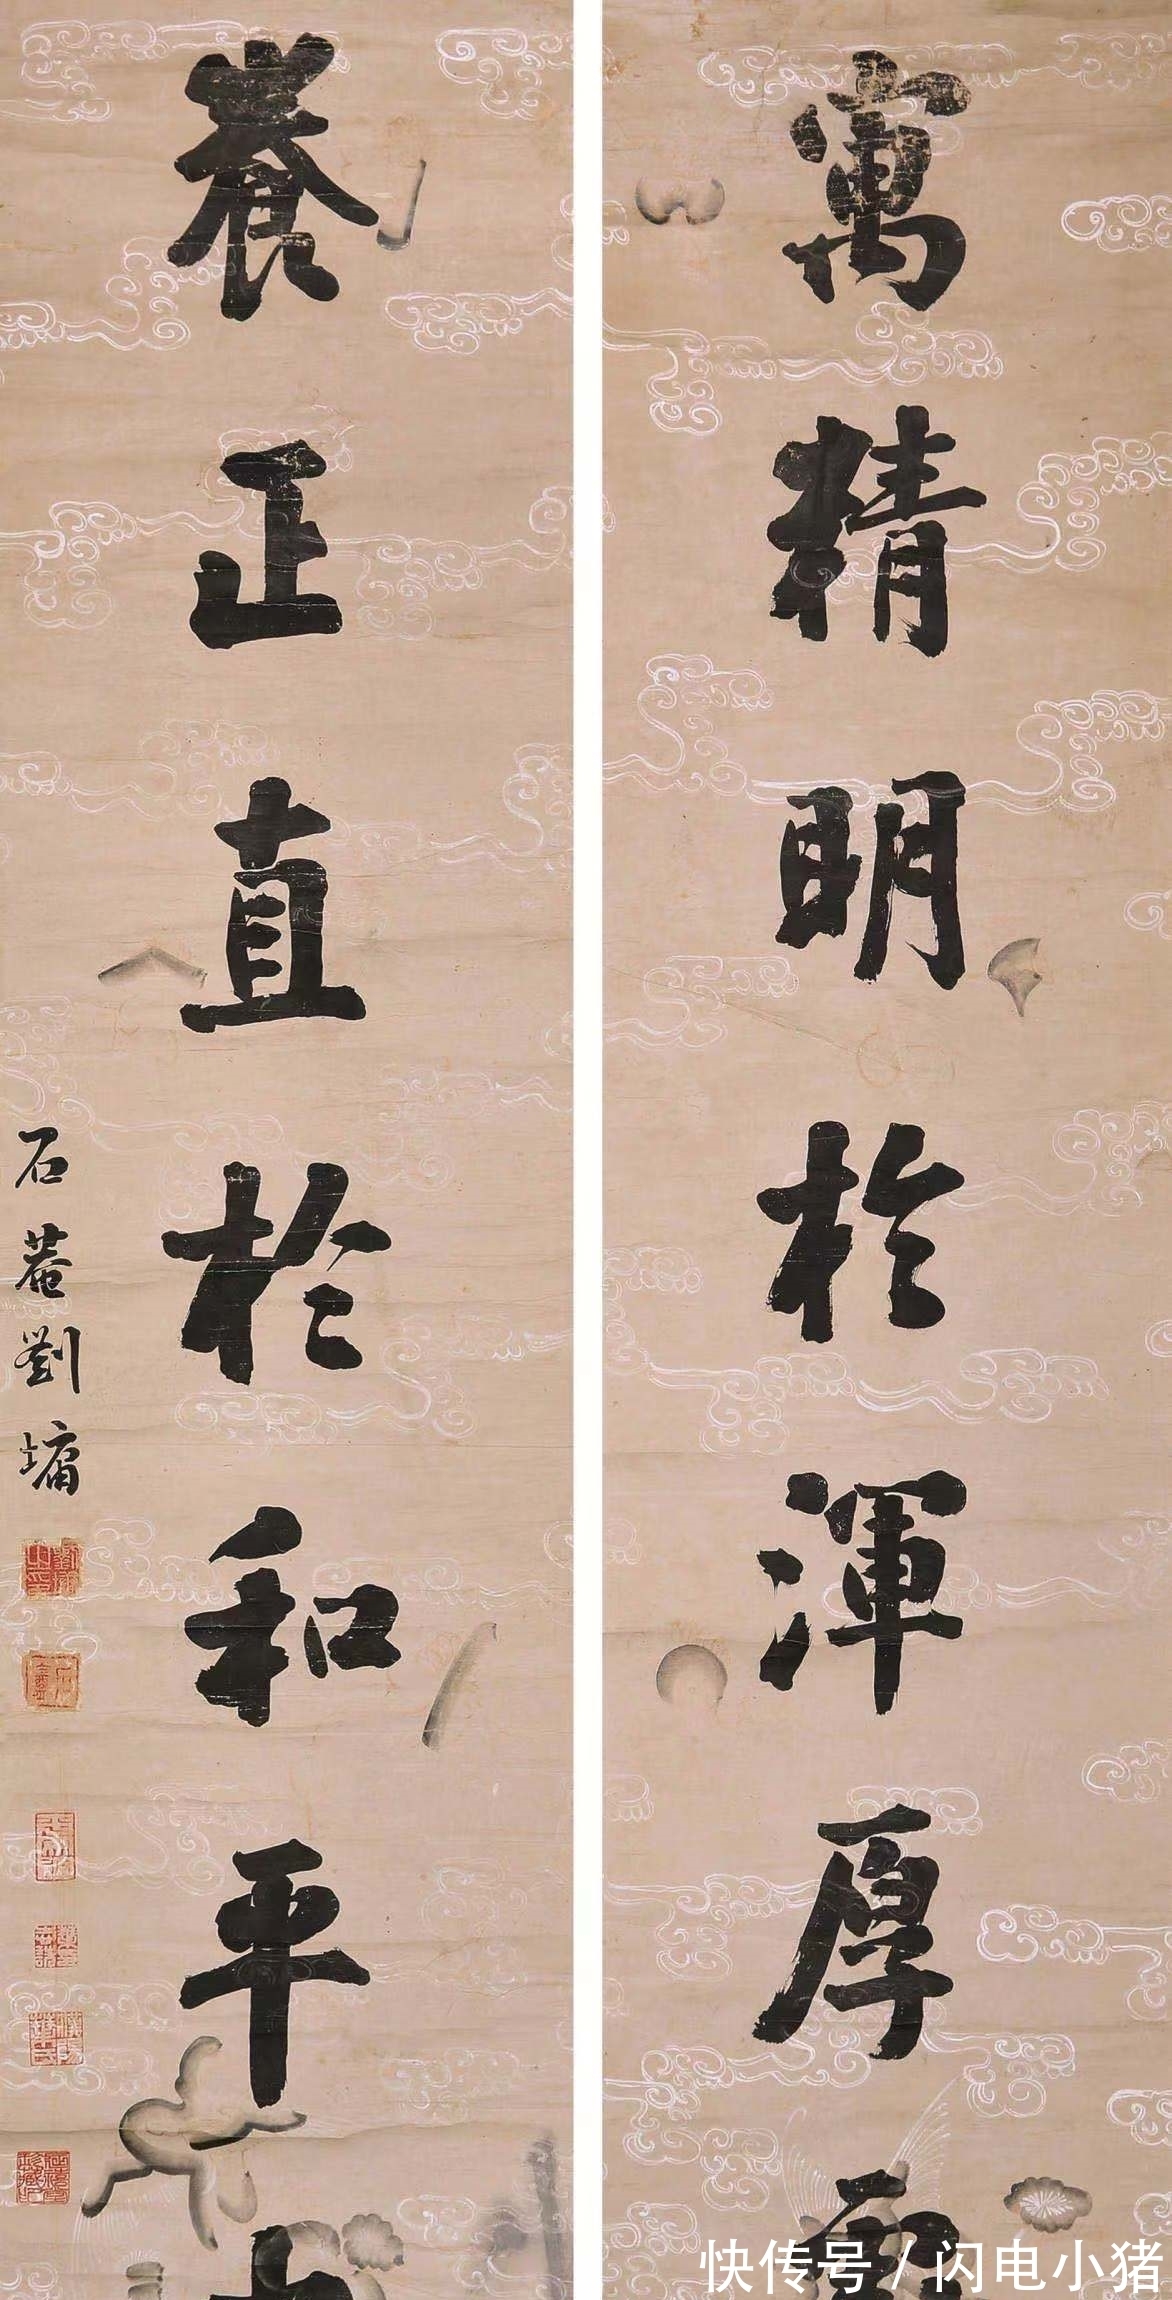 寓精明於渾厚
養正直於和平
石菴劉墉
快传号 / 闪电小猪